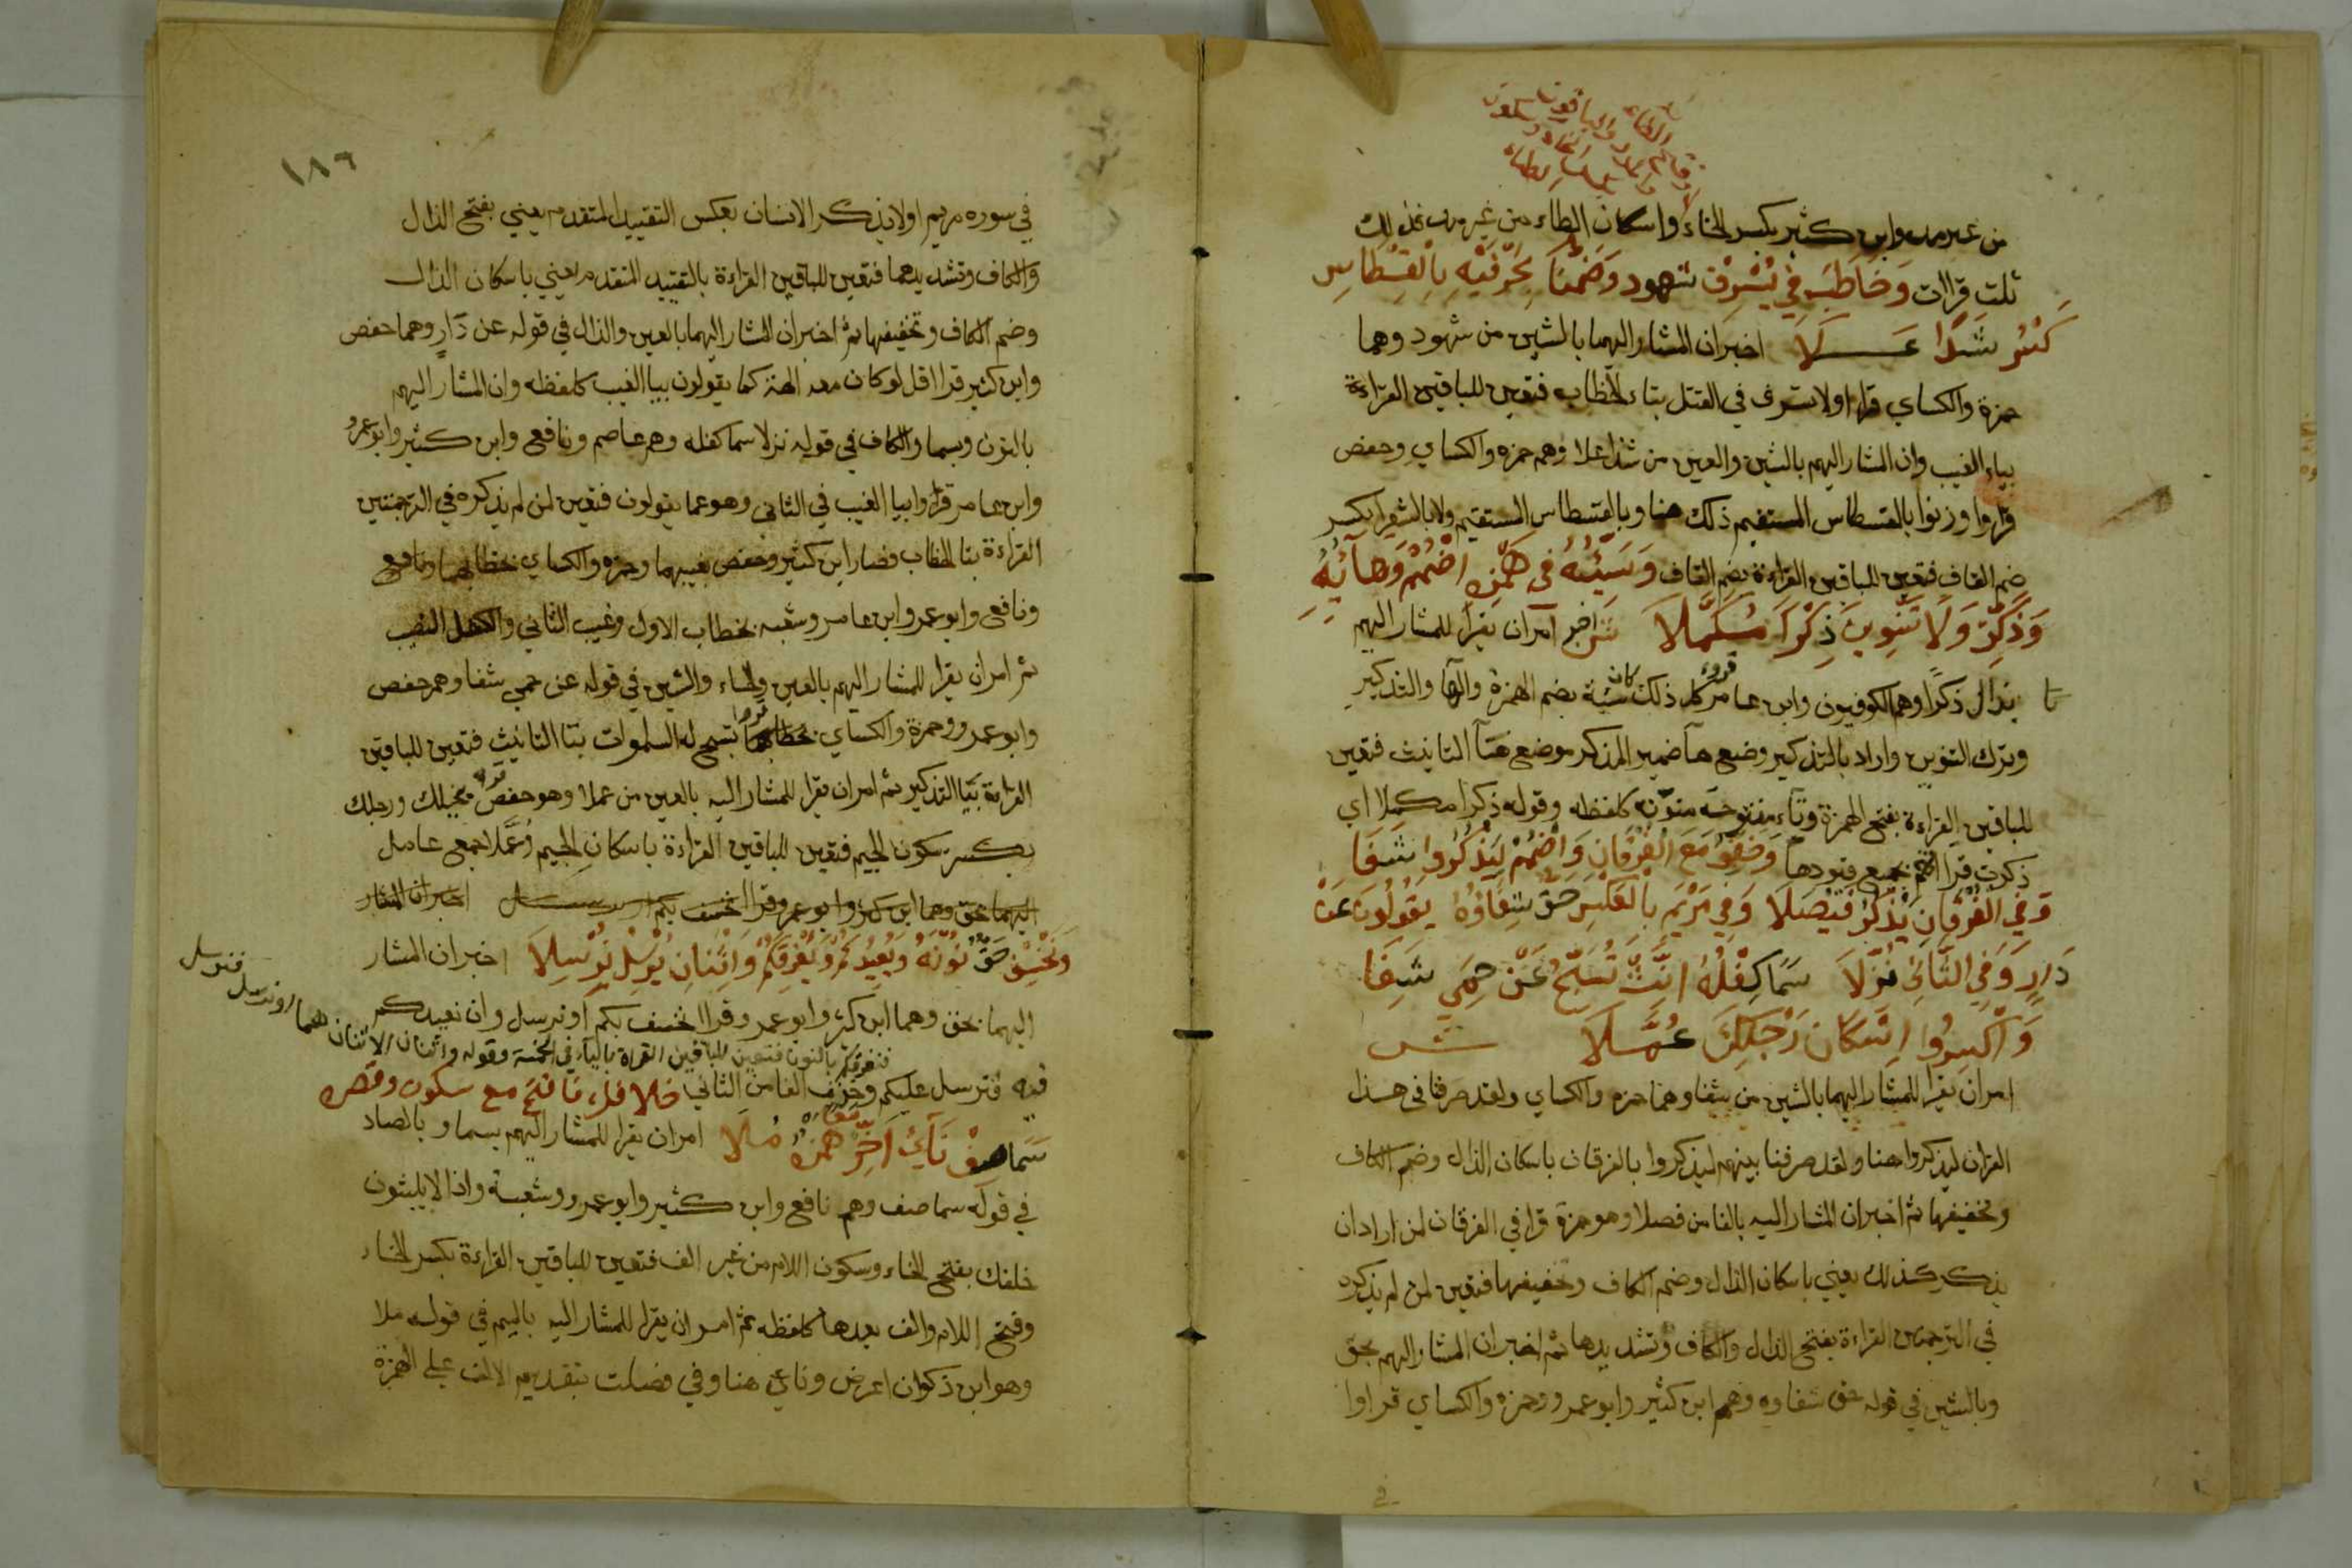 من غير مد وابن كثير بكسر الخاء واسكان الطاء من غير مد فذلك
ثلث قراات وَخَاطَبَ فِي يُسْرِفْ شهود وَضَمُّنَا بِحَرْفَيْهِ بِالْقِسْطَاسِ
كَسْرُ شَذًا عَلَا اخبر ان المشار اليهما بالشين من شهود وهما
حمزة والكساي قراا ولا تسرف في القتل بتاء الخطاب فتعين للباقين القراءة
بياء الغيب وان المشار اليهم بالشين والعين من شذا علا وهم حمزه والكساي وحفص
قراوا وزنوا بالقسطاس المستقيم ذلك هنا وبالقسطاس المستقيم ولا بالشعرا بكسر
ضم القاف فتعين للباقين القراءة بضم القاف وَسَيِّئَةً فِي هَمْزِهِ اضْمُمْ وَهَائِهِ
وَذَكِّرْ وَلَا تَنْوِينَ ذِكْرًا مُكَمَّلَا امر ان يقرا للمشار اليهم
بذال ذكرا وهم الكوفيون وابن عامر كل ذلك كان سيئة بضم الهمزة والها والتذكير
وترك التنوين واراد بالتذكير وضع هآ ضمير المذكر موضع هآ التانيث فتعين
للباقين القراءة بفتح الهمزة وتاء مفتوحه منونه كلفظه وقوله ذكرا مكملا اي
ذكرت جميع قيودها وَخَفِّفْ مَعَ الْفُرْقَانِ وَاضْمُمْ لِيَذْكُرُوا شِفَا
وَفِي الْفُرْقَانِ يَذْكُرُ فُيْصِلَا وَفِي مَرْيَمٍ بِالْعَكْسِ حَقٌّ شِفَاؤُهُ يَقُولُونَ عَنْ
دَارٍ وَفِي الثَّانِي نُزِّلَا سَمَا كِفْلُهُ انِّثْ تُسَبِّحُ عَنْ حِمًى شَفَا
وَاكْسِرُوا اِسْكَانَ رَجْلِكَ عُمَّلَا ش
امر ان يقرا للمشار اليهما بالشين من شفا وهما حمزه والكساي ولقد صرفنا في هذا
القران ليذكروا هنا ولقد صرفنا بينهم ليذكروا بالفرقان باسكان الذال وضم الكاف
وتخفيفها ثم اخبر ان المشار اليه بالفا من فصلا وهو حمزة قرا في الفرقان لمن اراد ان
يذكر كذلك يعني باسكان الذال وضم الكاف وتخفيفها فتعين لمن لم يذكره
في الترجمتين القراءة بفتح الذال والكاف وتشديدها ثم اخبر ان المشار اليهم بحق
وبالشين في قوله حق شفاوه وهم ابن كثير وابو عمرو وحمزه والكساي قراوا
١٨٦
في سوره مريم اولا يذكر الانسان بعكس التقييد المتقدم يعني بفتح الذال
والكاف وتشديدهما فتعين للباقين القراءة بالتقييد المتقدم يعني باسكان الذال
وضم الكاف وتخفيفها ثم اخبر ان المشار اليهما بالعين والدال في قوله عن دَارٍ وهما حفص
وابن كثير قراا قل لو كان معه الهة كما يقولون بيا الغيب كلفظه وان المشار اليهم
بالنون وبسما والكاف في قوله نزلا سما كفله وهم عاصم ونافع وابن كثير وابو عمرو
وابن عامر قراوا بيا الغيب في الثاني وهو عما يقولون فتعين لمن لم يذكره في الترجمتين
القراءة بتا الخطاب فصار ابن كثير وحفص بغيبهما وحمزه والكساي بخطابهما
ونافع وابو عمرو وابن عامر وشعبه بخطاب الاول وغيب الثاني
ثم امر ان يقرا للمشار اليهم بالعين والحاء والشين في قوله عن حمى شفا وهم حفص
وابو عمرو وحمزة والكساي تسبح له السموات بتا التانيث فتعين للباقين
القراءة بيا التذكير ثم امر ان يقرا للمشار اليه بالعين من عملا وهو حفص بخيلك ورجلك
بكسر سكون الجيم فتعين للباقين القراءة باسكان الجيم وعُمَّلا جمع عامل
وَنَخْسِفْ حَقٌّ نُونُهُ وَنُعِيدَكُمْ وَنُغْرِقَكُمْ وَاثْنَانِ نُرْسِلَ نُرْسِلَا اخبر ان المشار
اليهما بحق وهما ابن كثير وابو عمرو قراا نخسف بكم او نرسل وان نعيدكم
فنغرقكم بالنون فتعين للباقين القراة بالياء في الخمسة وقوله واثنان الاثنان هما او نرسل فنرسل
فيه فنرسل عليكم وحذف الفا من الثاني خلافك فافتح مع سكون وقصره
سَمَا صِفْ نَآى أَخِّرْ مَعًا هَمْزَهُ مُلَا امر ان يقرا للمشار اليهم بسما وبالصاد
في قوله سما صف وهم نافع وابن كثير وابو عمرو وشعبة واذا لا يلبثون
خلفك بفتح الخاء وسكون اللام من غير الف فتعين للباقين القراءة بكسر الخاء
وفتح اللام والف بعدها كلفظه ثم امر ان يقرا للمشار اليه بالميم في قوله ملا
وهو ابن ذكوان اعرض ونآء هنا وفي فصلت بتقديم الالف على الهمزة